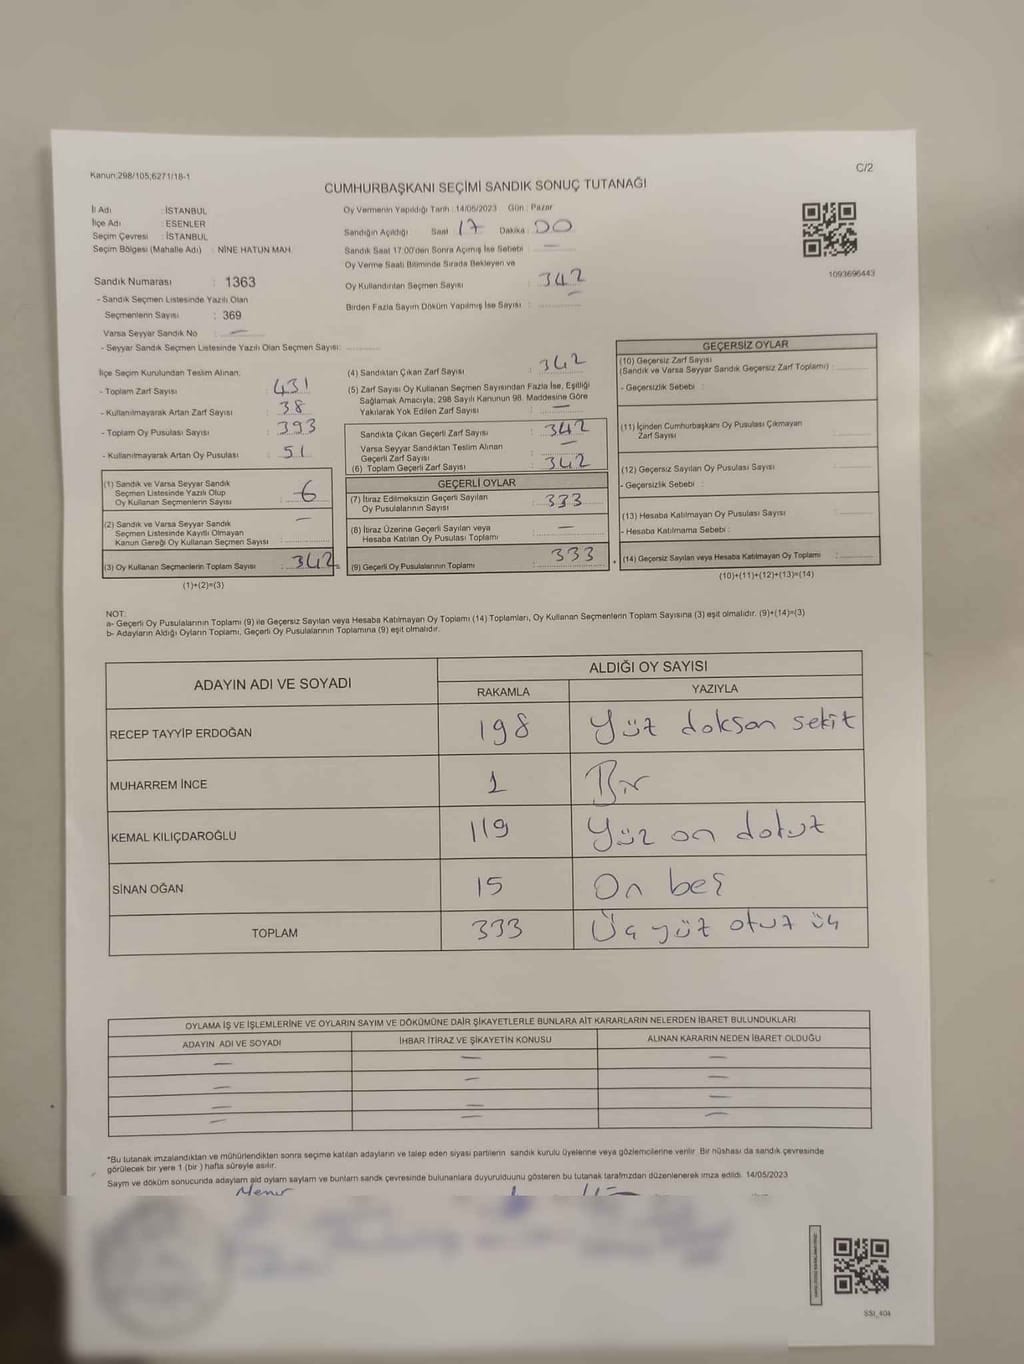 C/2
Kanun:298/105,6271/18-1
CUMHURBAŞKANI SEÇİMİ SANDIK SONUÇ TUTANAĞI
İl Adı : İSTANBUL
İlçe Adı : ESENLER
Seçim Çevresi : İSTANBUL
Seçim Bölgesi (Mahalle Adı) : NİNE HATUN MAH.
Oy Vermenin Yapıldığı Tarih : 14/05/2023 Gün : Pazar
Sandığın Açıldığı Saat 17 Dakika : 00
Sandık Saat 17:00'den Sonra Açımış İse Sebebi : —
Oy Verme Saati Bitiminde Sırada Bekleyen ve
Oy Kullandırılan Seçmen Sayısı : 342
Birden Fazla Sayım Döküm Yapılmış İse Sayısı : —
1093696443
Sandık Numarası : 1363
- Sandık Seçmen Listesinde Yazılı Olan
Seçmenlerin Sayısı : 369
Varsa Seyyar Sandık No : —
- Seyyar Sandık Seçmen Listesinde Yazılı Olan Seçmen Sayısı:
İlçe Seçim Kurulundan Teslim Alınan;
- Toplam Zarf Sayısı : 431
- Kullanılmayarak Artan Zarf Sayısı : 38
- Toplam Oy Pusulası Sayısı : 393
- Kullanılmayarak Artan Oy Pusulası : 51
(1) Sandık ve Varsa Seyyar Sandık
Seçmen Listesinde Yazılı Olup
Oy Kullanan Seçmenlerin Sayısı : 6
(2) Sandık ve Varsa Seyyar Sandık
Seçmen Listesinde Kayıtlı Olmayan
Kanun Gereği Oy Kullanan Seçmen Sayısı : —
(3) Oy Kullanan Seçmenlerin Toplam Sayısı : 342
(1)+(2)=(3)
(4) Sandıktan Çıkan Zarf Sayısı : 342
(5) Zarf Sayısı Oy Kullanan Seçmen Sayısından Fazla İse, Eşitliği
Sağlamak Amacıyla; 298 Sayılı Kanunun 98. Maddesine Göre
Yakılarak Yok Edilen Zarf Sayısı : —
Sandıkta Çıkan Geçerli Zarf Sayısı : 342
Varsa Seyyar Sandıktan Teslim Alınan
Geçerli Zarf Sayısı : —
(6) Toplam Geçerli Zarf Sayısı : 342
GEÇERLİ OYLAR
(7) İtiraz Edilmeksizin Geçerli Sayılan
Oy Pusulalarının Sayısı : 333
(8) İtiraz Üzerine Geçerli Sayılan veya
Hesaba Katılan Oy Pusulası Toplamı : —
(9) Geçerli Oy Pusulalarının Toplamı : 333
GEÇERSİZ OYLAR
(10) Geçersiz Zarf Sayısı
(Sandık ve Varsa Seyyar Sandık Geçersiz Zarf Toplamı) :
- Geçersizlik Sebebi :
(11) İçinden Cumhurbaşkanı Oy Pusulası Çıkmayan
Zarf Sayısı :
(12) Geçersiz Sayılan Oy Pusulası Sayısı :
- Geçersizlik Sebebi :
(13) Hesaba Katılmayan Oy Pusulası Sayısı :
- Hesaba Katılmama Sebebi :
(14) Geçersiz Sayılan veya Hesaba Katılmayan Oy Toplamı :
(10)+(11)+(12)+(13)=(14)
NOT:
a- Geçerli Oy Pusulalarının Toplamı (9) ile Geçersiz Sayılan veya Hesaba Katılmayan Oy Toplamı (14) Toplamları, Oy Kullanan Seçmenlerin Toplam Sayısına (3) eşit olmalıdır. (9)+(14)=(3)
b- Adayların Aldığı Oyların Toplamı, Geçerli Oy Pusulalarının Toplamına (9) eşit olmalıdır.
ADAYIN ADI VE SOYADI ALDIĞI OY SAYISI
RAKAMLA YAZIYLA
RECEP TAYYİP ERDOĞAN 198 Yüz doksan sekiz
MUHARREM İNCE 1 Bir
KEMAL KILIÇDAROĞLU 119 Yüz on dokuz
SİNAN OĞAN 15 On beş
TOPLAM 333 Üç yüz otuz üç
OYLAMA İŞ VE İŞLEMLERİNE VE OYLARIN SAYIM VE DÖKÜMÜNE DAİR ŞİKAYETLERLE BUNLARA AİT KARARLARIN NELERDEN İBARET BULUNDUKLARI
ADAYIN ADI VE SOYADI İHBAR İTİRAZ VE ŞİKAYETİN KONUSU ALINAN KARARIN NEDEN İBARET OLDUĞU
— — —
— — —
— — —
— — —
*Bu tutanak imzalandıktan ve mühürlendikten sonra seçime katılan adayların ve talep eden siyasi partilerin sandık kurulu üyelerine veya gözlemcilerine verilir. Bir nüshası da sandık çevresinde
görülecek bir yere 1 (bir) hafta süreyle asılır.
Sayım ve döküm sonucunda adayların aldığı oyların sayısının ve bunların sandık çevresinde bulunanlara duyurulduğunu gösteren bu tutanak tarafımızdan düzenlenerek imza edildi. 14/05/2023
SSI_404